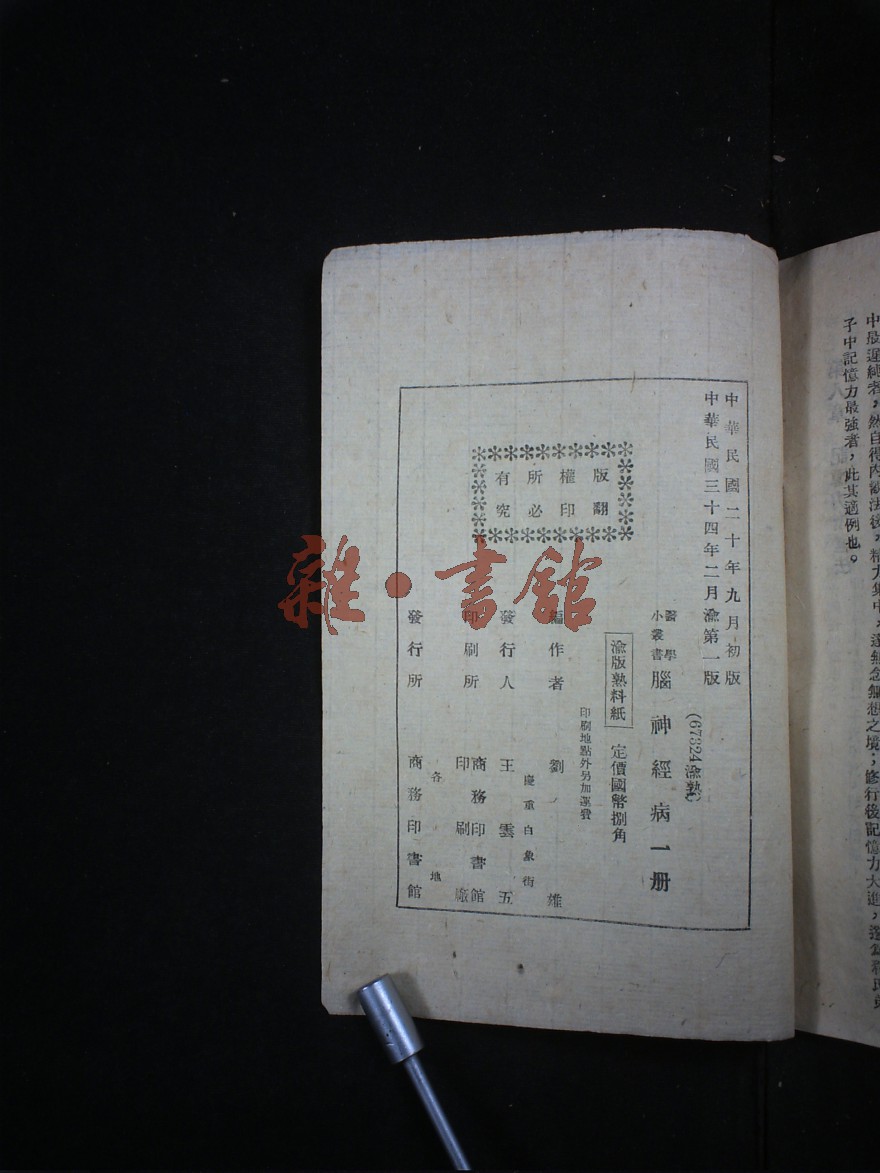 中最遲鈍者，然自得內觀法後，精力集中，達無念無想之境；修行後記憶力大進，
子中記憶力最強者，此其適例也。
中華民國二十年九月初版
中華民國三十四年二月渝第一版
(67324渝熟)
醫學
小叢書
腦神經病一册
渝版熟料紙 定價國幣捌角
印刷地點外另加運費
版權所有
翻印必究
編作者 劉雄
重慶白象街
發行人 王雲五
印刷所 商務印書館
印刷廠
各地
發行所 商務印書館
雜·書館